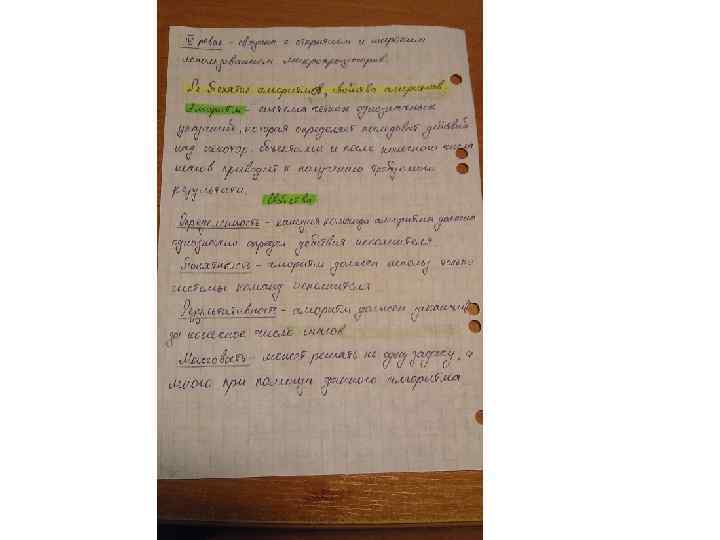 V револ – связана с открытием и широким
использованием микропроцессоров.
Понятие алгоритмов, свойства алгоритмов.
Алгоритм – система четких однозначных
указаний, которая определяет последоват действий
над некотор. объектами и после конечного числа
шагов приводит к получению требуемого
результата.
Свойства
Определенность – каждая команда алгоритма должна
однозначно определ действия исполнителя.
Понятность – алгоритм должен использ только
системы команд исполнителя.
Результативность – алгоритм должен
за конечное число шагов
Массовость – может решать не одну задачу, а
много при помощи данного алгоритма